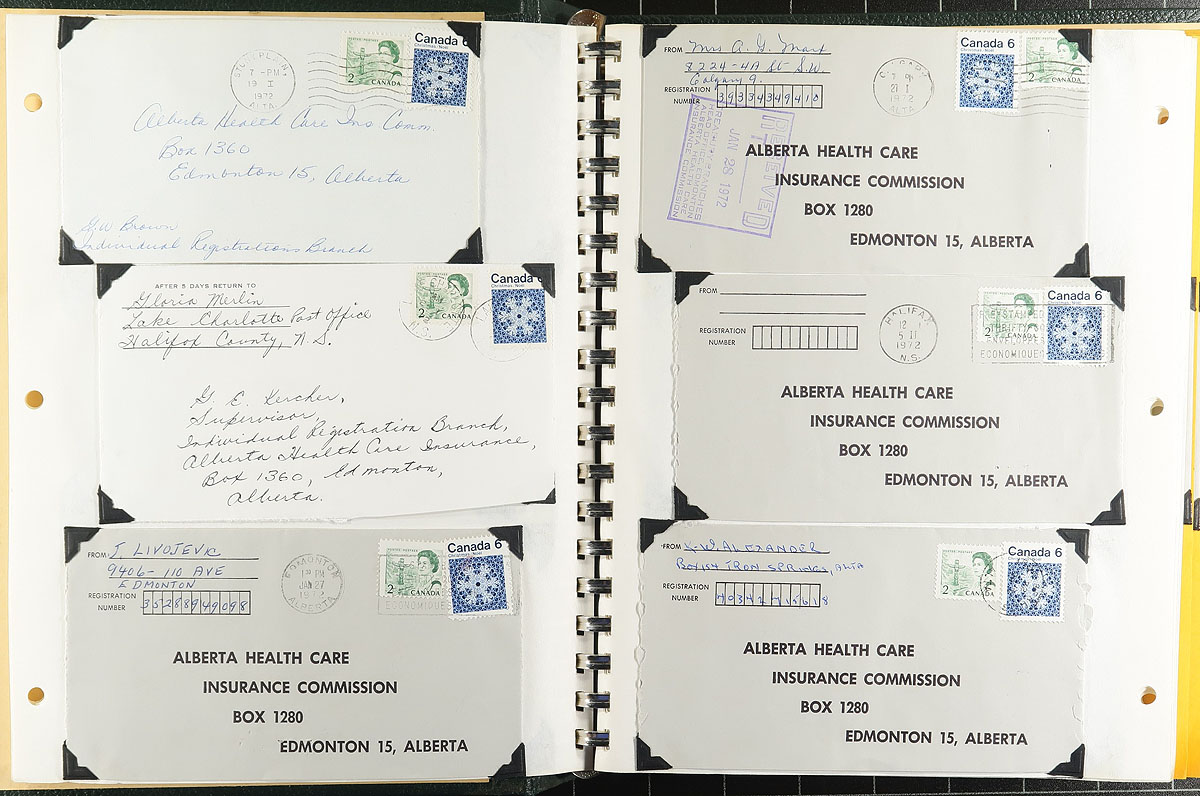 STONY PLAIN
7 -PM
19 I
1972
ALTA
2 CANADA
Canada 6
Christmas Noël
Alberta Health Care Ins Comm.
Box 1360
Edmonton 15, Alberta
G.W Brown
Individual Registrations Branch
AFTER 5 DAYS RETURN TO
Gloria Merlin
Lake Charlotte Post Office
Halifax County, N.S.
2 CANADA
Canada 6
Christmas Noël
G. E. Kercher,
Supervisor,
Individual Registration Branch,
Alberta Health Care Insurance,
Box 1360, Edmonton,
Alberta.
FROM J. LIVOJEVIC
9406 - 110 AVE
EDMONTON
REGISTRATION
NUMBER 35288949098
EDMONTON
PM
JAN 27
1972
ALBERTA
2 CANADA
ECONOMIQUE
Canada 6
Christmas Noël
ALBERTA HEALTH CARE
INSURANCE COMMISSION
BOX 1280
EDMONTON 15, ALBERTA
FROM Mrs A. G. Marx
8224-4A St S.W.
Calgary 9.
REGISTRATION
NUMBER 39334349410
CALGARY
PM
21 I
1972
ALTA
Canada 6
Christmas Noël
2 CANADA
RECEIVED
JAN 26 1972
HEAD OFFICE EDMONTON
ALBERTA HEALTH CARE
INSURANCE COMMISSION
ALBERTA HEALTH CARE
INSURANCE COMMISSION
BOX 1280
EDMONTON 15, ALBERTA
FROM
REGISTRATION
NUMBER
HALIFAX
12
5 II
1972
N.S.
2 CANADA
ECONOMIQUE
Canada 6
Christmas Noël
ALBERTA HEALTH CARE
INSURANCE COMMISSION
BOX 1280
EDMONTON 15, ALBERTA
FROM K.W. ALEXANDER
Box 154 IRON SPRINGS, ALTA
REGISTRATION
NUMBER
2 CANADA
Canada 6
Christmas Noël
ALBERTA HEALTH CARE
INSURANCE COMMISSION
BOX 1280
EDMONTON 15, ALBERTA